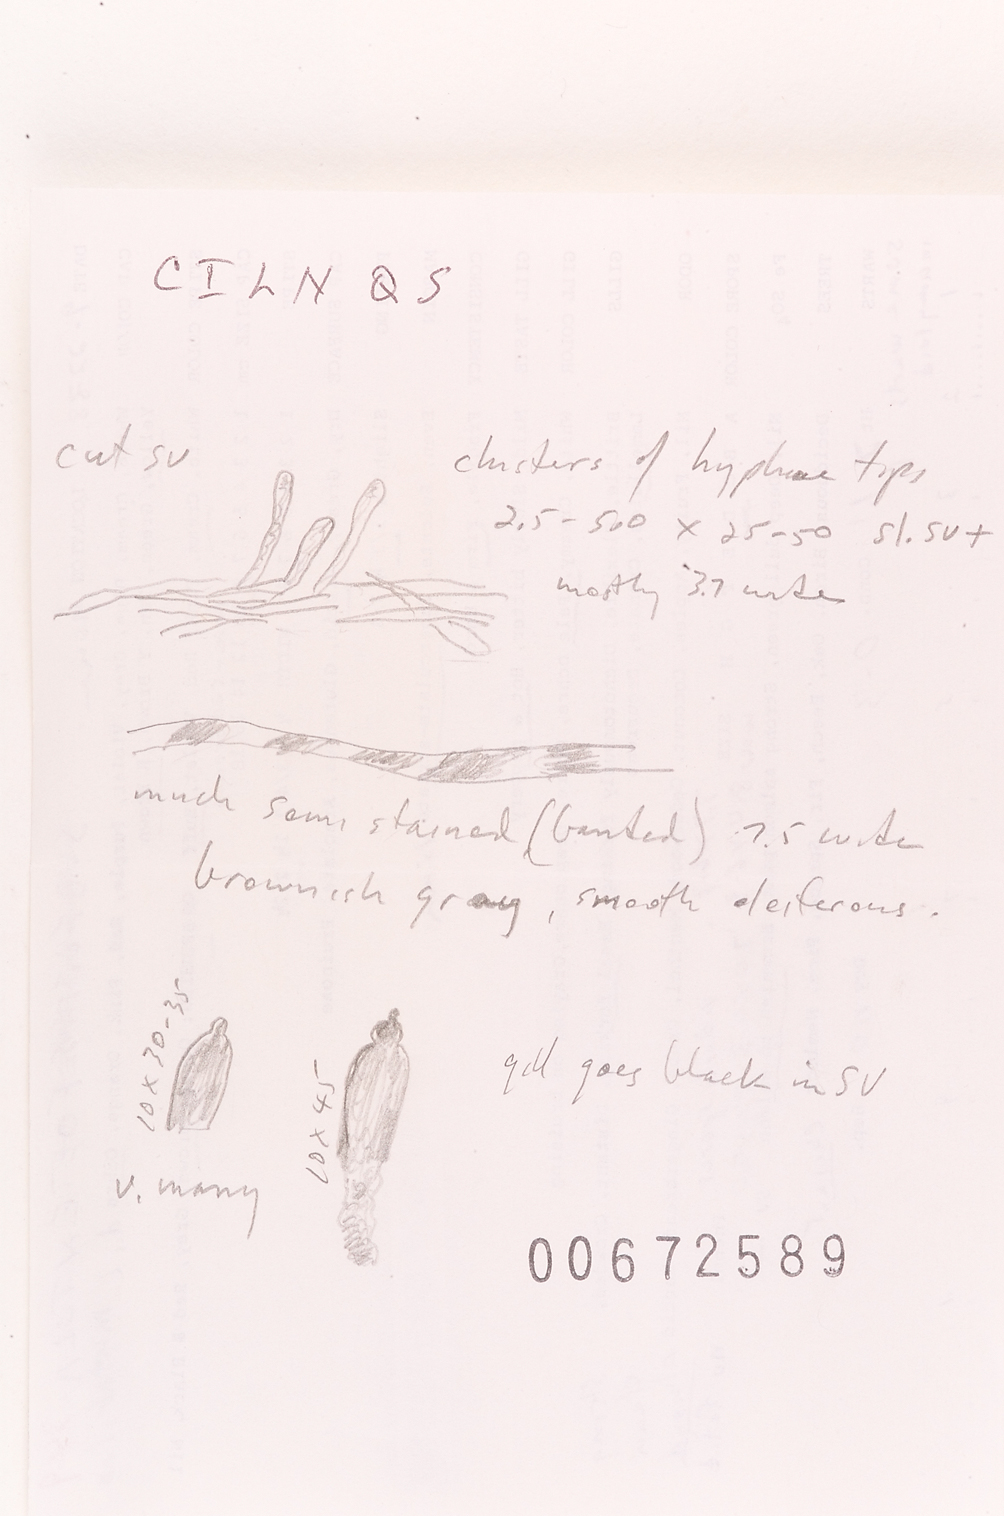 CILNQS
cut SV
clusters of hyphae tips
2.5-5.0 x 25-50 sl. SV+
mostly 3.7 wide
much semi stained (banded) 7.5 wide
brownish gray, smooth deiferous.
10 x 30-35
v. many
10 x 45
gill goes black in SV
00672589